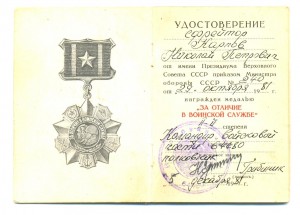 УДОСТОВЕРЕНИЕ
ефрейтор
Николай Петрович
от имени Президиума Верховного
Совета СССР приказом Министра
обороны СССР № 270
от 22 октября 1981 г.
награжден медалью
"ЗА ОТЛИЧИЕ
В ВОИНСКОЙ СЛУЖБЕ"
II-й
степени
Командир войсковой
части
полковник
5 декабря 81 г.